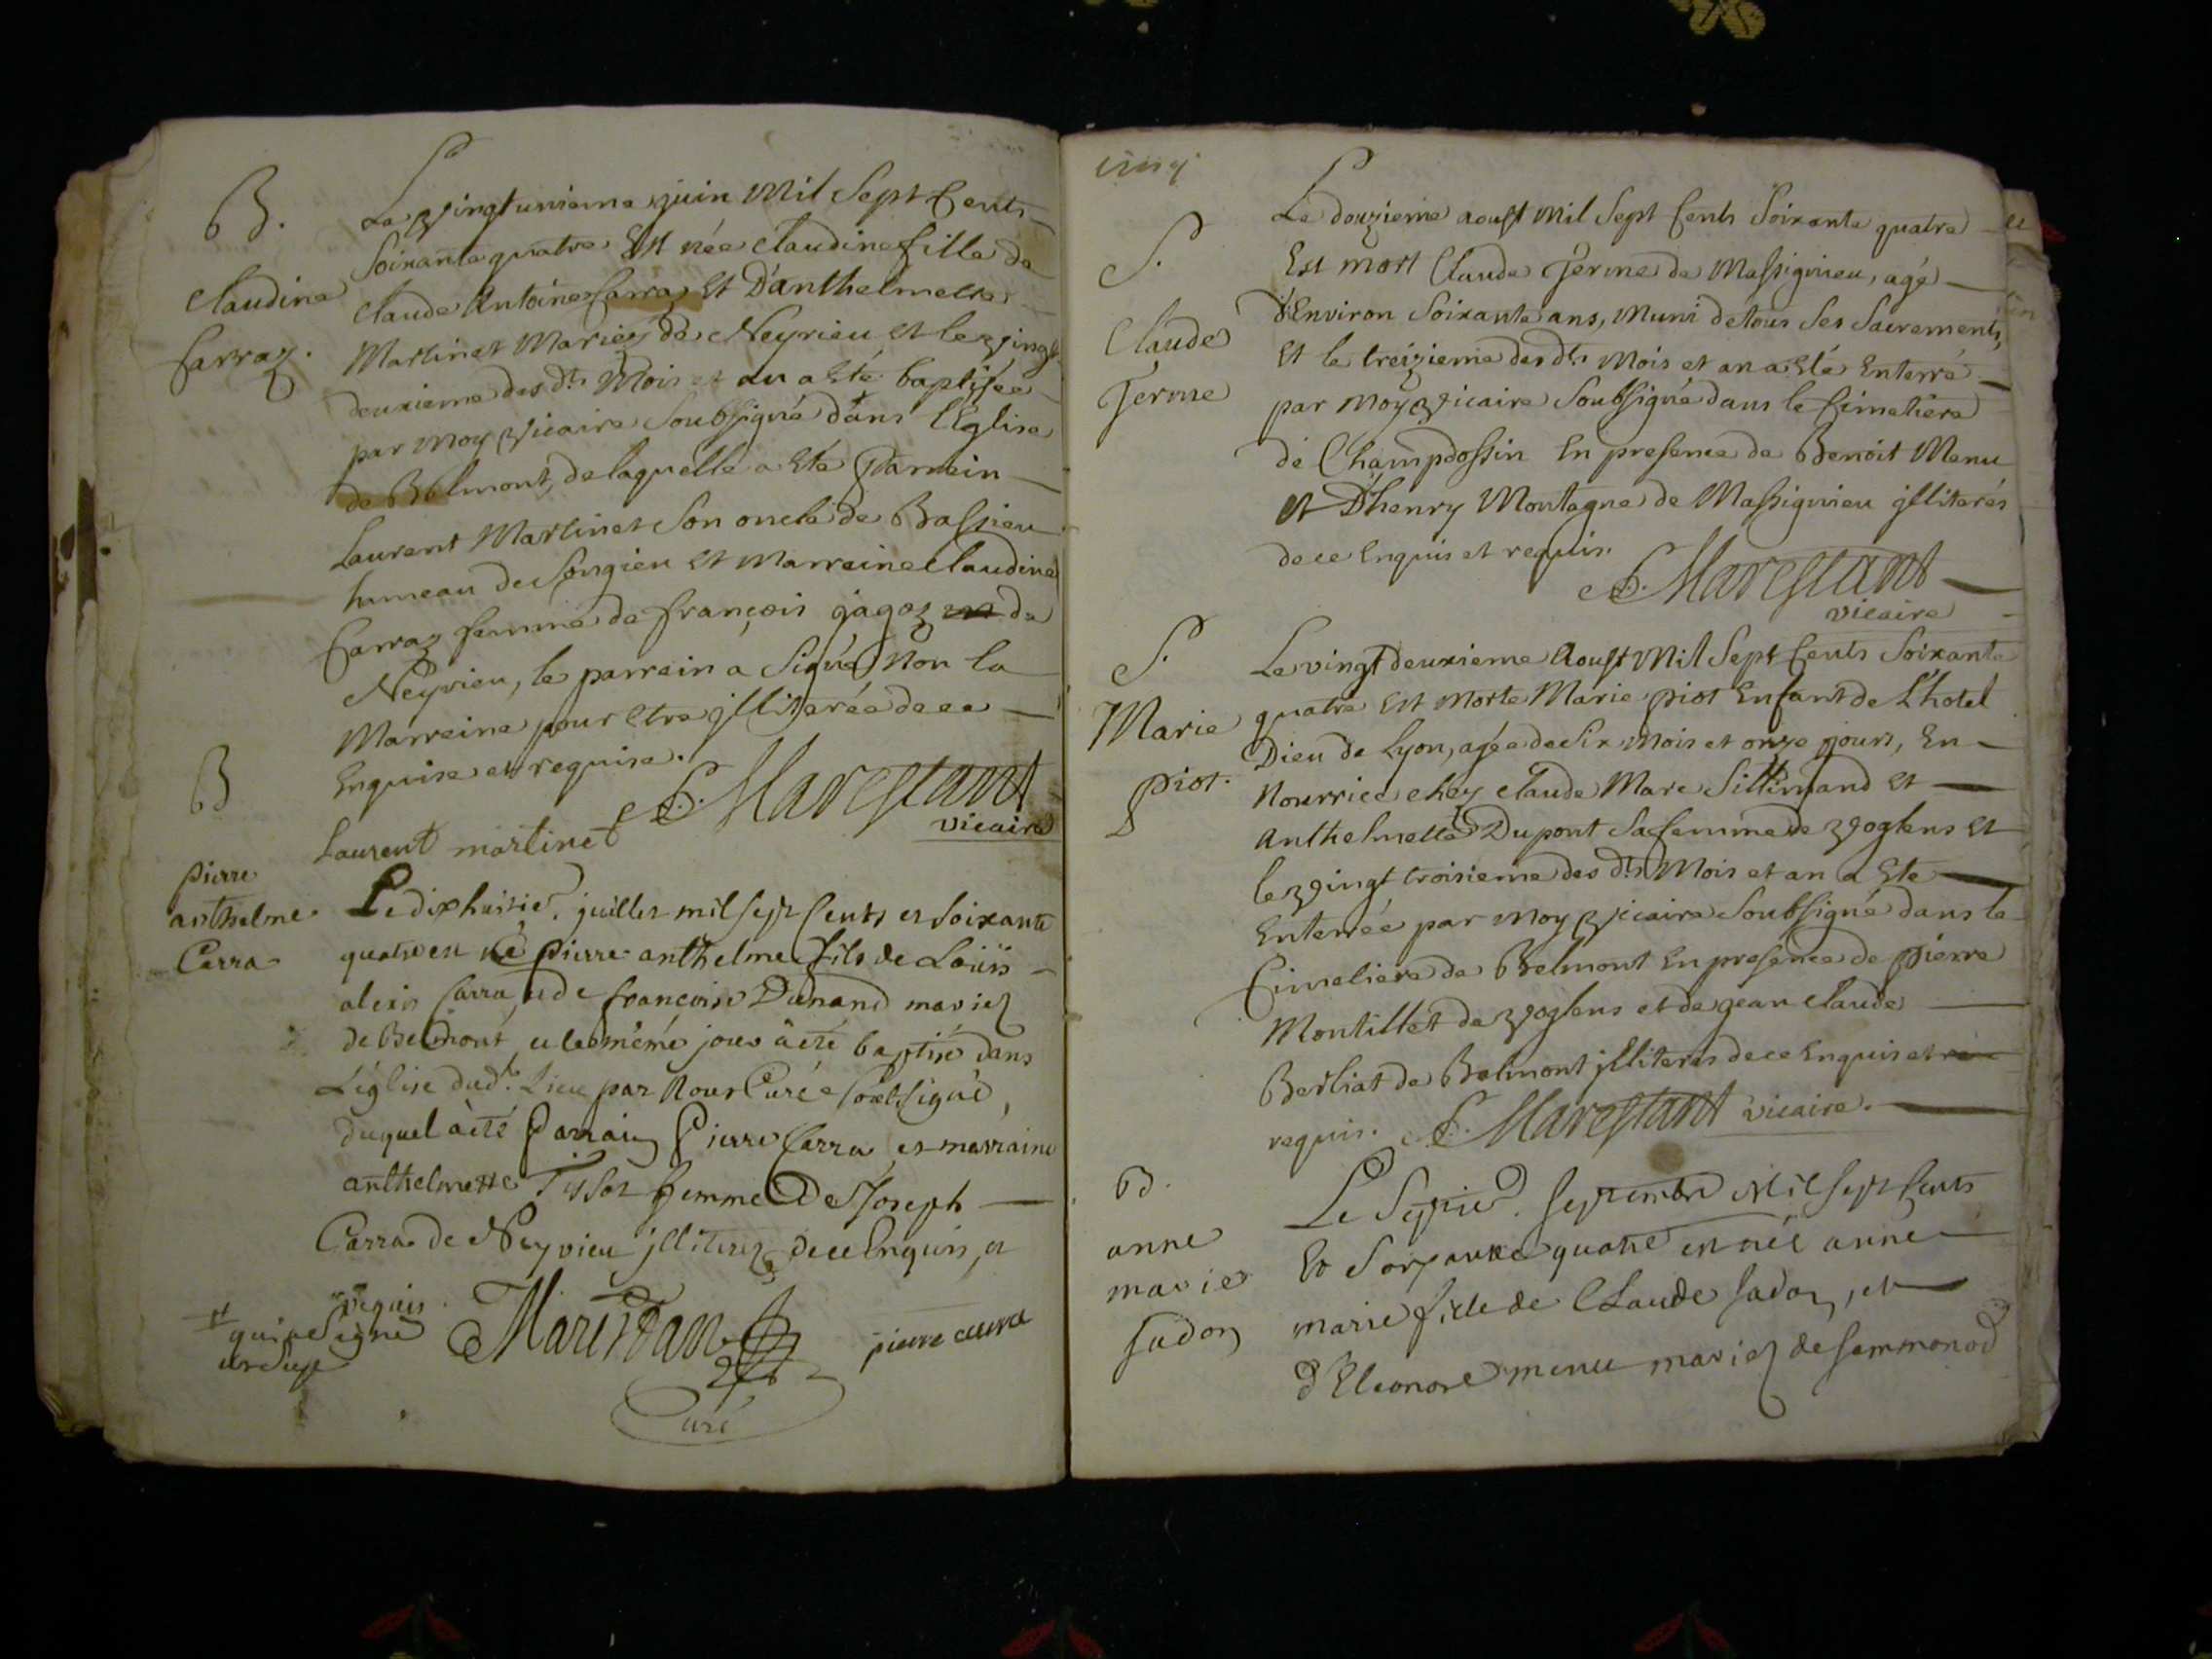 B.
Claudine
Carraz.
Le vingt unieme juin mil Sept Cents
Soixante quatre Est née claudine fille de
Claude Antoine Carraz Et D'anthelmette
Martinet Mariez de Neyrieu Et le vingt
deuxieme des dts Mois et an a Eté baptisée
par moy vicaire Soubsigné dans l'Eglise
de Belmont, de laquelle a Eté Parrein
Laurent Martinet Son oncle de Bassieu
hameau de Songieu Et Marreine Claudine
Carraz femme de françois jagoz de
Neyrieu, le parrein a Signé Non la
Marreine pour Etre jlliterée de ce
Enquise et requise.
Marestant
vicaire
Laurent martinet
B
pierre
anthelme
Carra
Le dixhuitie. juillet mil sept Cents et Soixante
quatre est né pierre anthelme fils de Loüis
alexis Carra, et de françoise Dunand mariez
de Belmont, et le même jour à eté baptisé dans
L'église dud. Lieu par Nous Curé Soubsigné,
duquel à eté Parrain Pierre Carra et marraine
anthelmette Tissot femme De Joseph
Carra de Neyrieu jlliterez de ce Enquis, et
requis.
qui a Signé
Marestan
Curé
pierre carra
cinq
S.
Claude
Jerme
Le douzieme aoust mil Sept Cents Soixante quatre
Est mort Claude Jerme de Massignieu, agé
d'Environ Soixante ans, Muni de tous Ses Sacrements,
Et le treizieme des dts Mois et an a Eté Enterré
par moy vicaire Soubsigné dans le Cimetiere
de Champdossin En presence de Benoit Menu
et D'henry Montagne de Massignieu jlliterés
de ce Enquis et requis.
Marestant
vicaire
S.
Marie
piot.
Le vingt deuxieme Aoust Mil Sept Cents Soixante
quatre Est Morte Marie piot Enfant de L'hotel
Dieu de Lyon, agée de Six Mois et onze jours, En
Nourrice chez Claude Marc Sillimand Et
Anthelmette Dupont Sa femme de voglens Et
le vingt troisieme des dts Mois et an a Eté
Enterrée par moy vicaire Soubsigné dans le
Cimetiere de Belmont En presence de pierre
Montillet de voglens et de jean Claude
Berliat de Belmont jlliterés de ce Enquis et
requis. Marestant vicaire.
B.
anne
marie
Sadon
Le Septie. Septembre Mil sept Cents
Et Soixante quatre est née anne
marie fille de Claude Sadon, et
d'Eleonore menu mariez de Sammonod